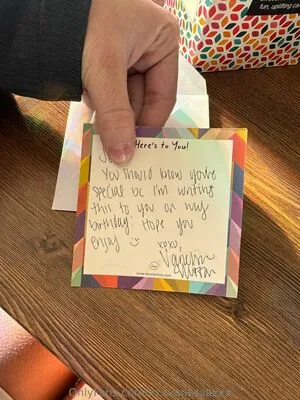 fun, uplifting ca
Here's to You!
You should know you're
special bc I'm writing
this to you on my
birthday! Hope you
enjoy
xoxo,
www.dessieshop.com